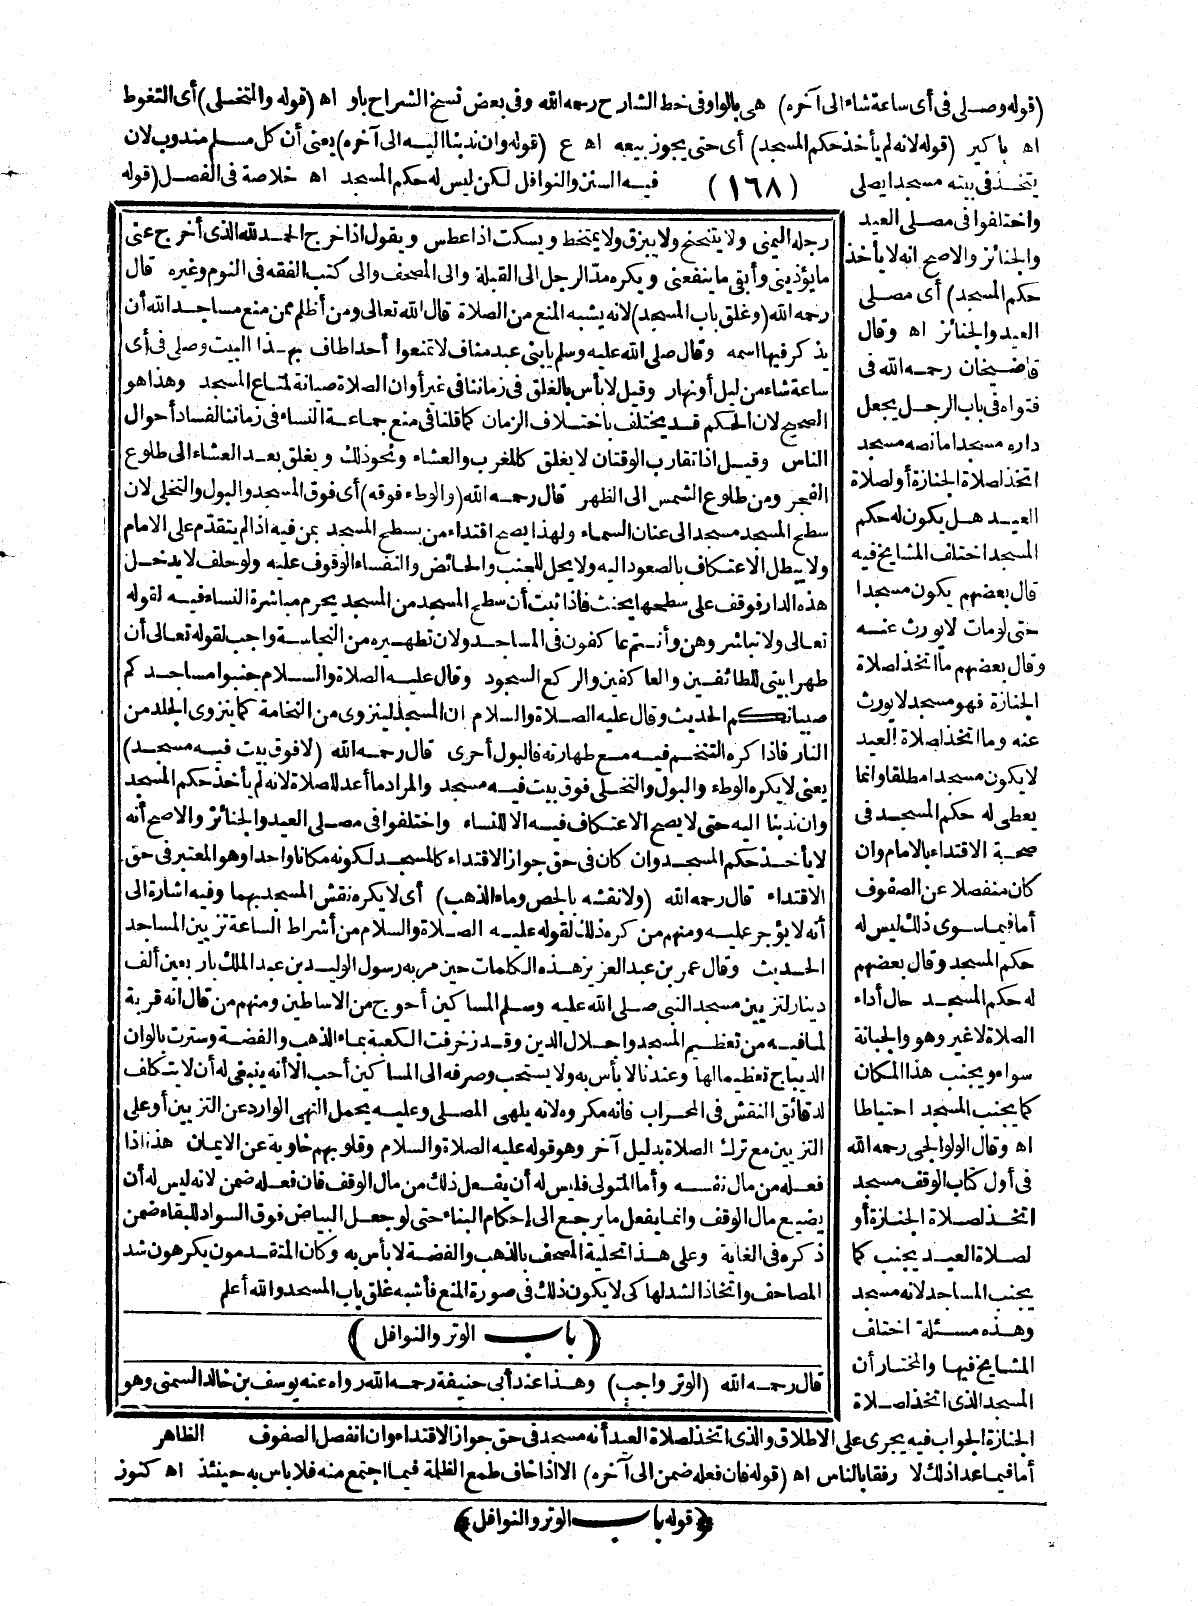 (قوله وصلى فى أى ساعة شاء الى آخره) هى بالواو فى خط الشارح رحمه الله وفى بعض نسخ الشراح باو اه (قوله والتخلى) أى التغوط
اه باكير (قوله لانه لم يأخذ حكم المسجد) أى حتى يجوز بيعه اه ع (قوله وان ندبنا اليه الى آخره) يعنى أن كل مسلم مندوب لان
يتخذ فى بيته مسجدا يصلى (١٦٨) فيه السنن والنوافل لكن ليس له حكم المسجد اه خلاصة فى الفصل (قوله
واختلفوا فى مصلى العيد
والجنائز والاصح انه لا يأخذ
حكم المسجد) أى مصلى
العيد والجنائز اه وقال
قاضيخان رحمه الله فى
فتواه فى باب الرجل يجعل
داره مسجدا ما نصه مسجد
اتخذ لصلاة الجنازة أو لصلاة
العيد هل يكون له حكم
المسجد اختلف المشايخ فيه
قال بعضهم يكون مسجدا
حتى لو مات لا يورث عنه
وقال بعضهم ما اتخذ لصلاة
الجنازة فهو مسجد لا يورث
عنه وما اتخذ لصلاة العيد
لا يكون مسجدا مطلقا وانما
يعطى له حكم المسجد فى
صحة الاقتداء بالامام وان
كان منفصلا عن الصفوف
أما فيما سوى ذلك ليس له
حكم المسجد وقال بعضهم
له حكم المسجد حال أداء
الصلاة لا غير وهو والجبانة
سواء ويجنب هذا المكان
كما يجنب المسجد احتياطا
اه وقال الولوالجى رحمه الله
فى أول كتاب الوقف مسجد
اتخذ لصلاة الجنازة أو
لصلاة العيد يجنب كما
يجنب المساجد لانه مسجد
وهذه مسئلة اختلف
المشايخ فيها والمختار أن
المسجد الذى اتخذ لصلاة
رجله اليمنى ولا يتنحنح ولا يبزق ولا يمتخط ويسكت اذا عطس ويقول اذا خرج الحمد لله الذى أخرج عنى
ما يؤذينى وأبقى ما ينفعنى ويكره مد الرجل الى القبلة والى المصحف والى كتب الفقه فى النوم وغيره قال
رحمه الله (وغلق باب المسجد) لانه يشبه المنع من الصلاة قال الله تعالى ومن أظلم ممن منع مساجد الله أن
يذكر فيها اسمه وقال صلى الله عليه وسلم يا بنى عبد مناف لا تمنعوا أحدا طاف بهذا البيت وصلى فى أى
ساعة شاء من ليل أو نهار وقيل لا بأس بالغلق فى زماننا فى غير أوان الصلاة صيانة لمتاع المسجد وهذا هو
الصحيح لان الحكم قد يختلف باختلاف الزمان كما قلنا فى منع جماعة النساء فى زماننا لفساد أحوال
الناس وقيل اذا تقارب الوقتان لا يغلق كالمغرب والعشاء ونحو ذلك ويغلق بعد العشاء الى طلوع
الفجر ومن طلوع الشمس الى الظهر قال رحمه الله (والوطء فوقه) أى فوق المسجد والبول والتخلى لان
سطح المسجد مسجد الى عنان السماء ولهذا يصح اقتداء من بسطح المسجد بمن فيه اذا لم يتقدم على الامام
ولا يبطل الاعتكاف بالصعود اليه ولا يحل للجنب والحائض والنفساء الوقوف عليه ولو حلف لا يدخل
هذه الدار فوقف على سطحها يحنث فاذا ثبت أن سطح المسجد من المسجد يحرم مباشرة النساء فيه لقوله
تعالى ولا تباشروهن وأنتم عاكفون فى المساجد ولان تطهيره من النجاسة واجب لقوله تعالى أن
طهرا بيتى للطائفين والعاكفين والركع السجود وقال عليه الصلاة والسلام جنبوا مساجدكم
صبيانكم الحديث وقال عليه الصلاة والسلام ان المسجد لينزوى من النخامة كما ينزوى الجلد من
النار فاذا كره التنخم فيه مع طهارته فالبول أحرى قال رحمه الله (لا فوق بيت فيه مسجد)
يعنى لا يكره الوطء والبول والتخلى فوق بيت فيه مسجد والمراد ما أعد للصلاة لانه لم يأخذ حكم المسجد
وان ندبنا اليه حتى لا يصح الاعتكاف فيه الا للنساء واختلفوا فى مصلى العيد والجنائز والاصح أنه
لا يأخذ حكم المسجد وان كان فى حق جواز الاقتداء كالمسجد لكونه مكانا واحدا وهو المعتبر فى حق
الاقتداء قال رحمه الله (ولا نقشه بالجص وماء الذهب) أى لا يكره نقش المسجد بهما وفيه اشارة الى
أنه لا يؤجر عليه ومنهم من كره ذلك لقوله عليه الصلاة والسلام من أشراط الساعة تزيين المساجد
الحديث وقال عمر بن عبد العزيز هذه الكلمات حين مر به رسول الوليد بن عبد الملك باربعين ألف
دينار لتزيين مسجد النبى صلى الله عليه وسلم المساكين أحوج من الاساطين ومنهم من قال انه قربة
لما فيه من تعظيم المسجد واجلال الدين وقد زخرفت الكعبة بماء الذهب والفضة وسترت بالوان
الديباج تعظيما لها وعندنا لا بأس به ولا يستحب وصرفه الى المساكين أحب الا أنه ينبغى له أن لا يتكلف
لدقائق النقش فى المحراب فانه مكروه لانه يلهى المصلى وعليه يحمل النهى الوارد عن التزيين أو على
التزيين مع ترك الصلاة بدليل آخره وهو قوله عليه الصلاة والسلام وقلوبهم خاوية عن الايمان هذا اذا
فعله من مال نفسه وأما المتولى فليس له أن يفعل ذلك من مال الوقف فان فعله ضمن لانه ليس له أن
يضيع مال الوقف وانما يفعل ما يرجع الى إحكام البناء حتى لو جعل البياض فوق السواد للبقاء ضمن
ذكره فى الغاية وعلى هذا تحلية المصحف بالذهب والفضة لا بأس به وكان المتقدمون يكرهون شد
المصاحف واتخاذ الشد لها كى لا يكون ذلك فى صورة المنع فأشبه غلق باب المسجد والله أعلم
(باب الوتر والنوافل)
قال رحمه الله (الوتر واجب) وهذا عند أبى حنيفة رحمه الله رواه عنه يوسف بن خالد السمتى وهو
الجنازة الجواب فيه يجرى على الاطلاق والذى اتخذ لصلاة العيد أنه مسجد فى حق جواز الاقتداء وان انفصل الصفوف الظاهر
أما فيما عدا ذلك لا رفقا بالناس اه (قوله فان فعله ضمن الى آخره) الا اذا خاف طمع الظلمة فيما اجتمع منه فلا باس به حينئذ اه كنوز
﴿قوله باب الوتر والنوافل﴾